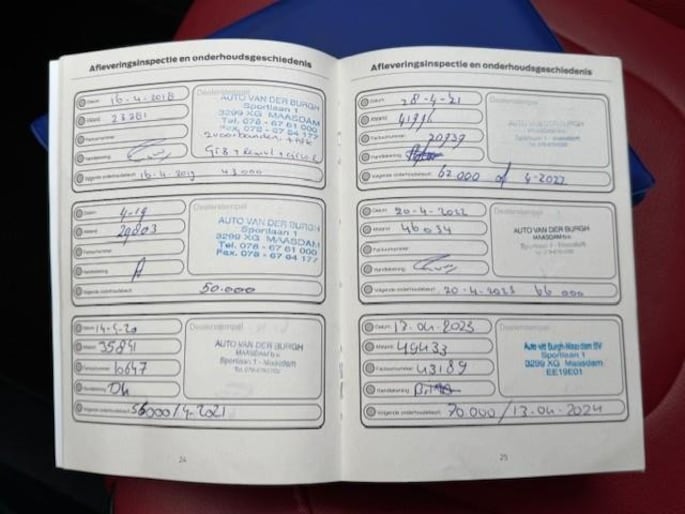 Afleveringsinspectie en onderhoudsgeschiedenis
Datum 16-4-2018
Kmstand 23281
Factuurnummer
Handtekening
Volgende onderhoudsbeurt 16-4-2019 43.000
Dealerstempel
AUTO VAN DER BURGH
Sportlaan 1
3299 XG MAASDAM
Tel. 078 - 67 61 000
Fax. 078 - 67 64 177
Datum 4-19
Kmstand 29803
Factuurnummer
Handtekening
Volgende onderhoudsbeurt 50.000
Dealerstempel
AUTO VAN DER BURGH
Sportlaan 1
3299 XG MAASDAM
Tel. 078 - 67 61 000
Fax. 078 - 67 64 177
Datum 14-5-20
Kmstand 35841
Factuurnummer 10647
Handtekening
Volgende onderhoudsbeurt 56000/4-2021
Dealerstempel
AUTO VAN DER BURGH
MAASDAM b.v.
Sportlaan 1 - Maasdam
24
Afleveringsinspectie en onderhoudsgeschiedenis
Datum 28-4-21
Kmstand
Factuurnummer 20739
Handtekening
Volgende onderhoudsbeurt 62.000 of 4-2022
Dealerstempel
AUTO VAN DER BURGH
Sportlaan 1 - Maasdam
Datum 20-4-2022
Kmstand 46034
Factuurnummer
Handtekening
Volgende onderhoudsbeurt 20-4-2023 66 000
Dealerstempel
AUTO VAN DER BURGH
MAASDAM b.v.
Sportlaan 1 - Maasdam
Datum 13-04-2023
Kmstand 49433
Factuurnummer 43189
Handtekening
Volgende onderhoudsbeurt 70.000/13-04-2024
Dealerstempel
Auto vd Burgh-Maasdam BV
Sportlaan 1
3299 XG Maasdam
EE19E01
25